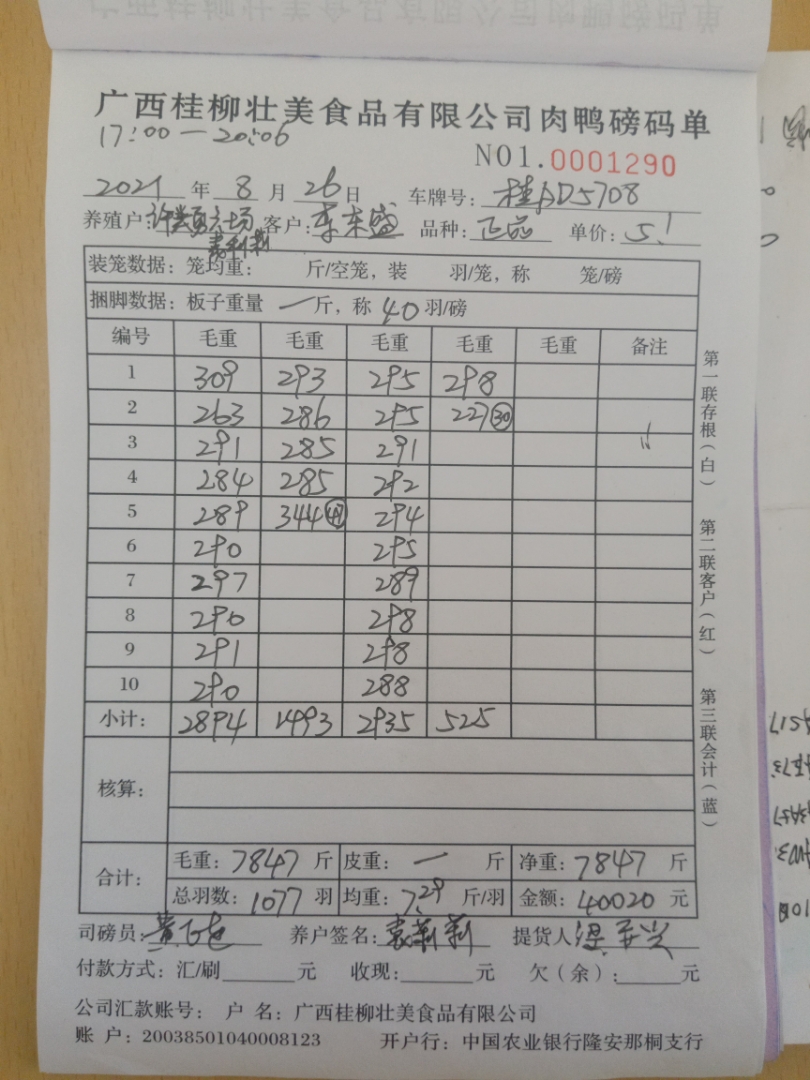 广西桂柳壮美食品有限公司肉鸭磅码单
17:00—20:06
NO1.0001290
2021年8月26日 车牌号:桂AD5708
养殖户: 客户: 东盛 品种:正品 单价:5.1
装笼数据:笼均重: 斤/空笼,装 羽/笼,称 笼/磅
捆脚数据:板子重量 一 斤,称 40 羽/磅
编号 毛重 毛重 毛重 毛重 毛重 备注
1 309 293 295 298
2 263 286 295 227 30
3 291 285 291
4 284 285 292
5 289 344 294
6 290 295
7 297 289
8 290 298
9 291 298
10 290 288
小计: 2894 1493 2935 525
核算:
合计: 毛重:7847斤 皮重:一斤 净重:7847斤
总羽数:1077羽 均重:7.29斤/羽 金额:40020元
司磅员: 养户签名:袁莉莉 提货人
付款方式:汇/刷 元 收现: 元 欠(余): 元
公司汇款账号: 户 名:广西桂柳壮美食品有限公司
账 户:20038501040008123 开户行:中国农业银行隆安那桐支行
第一联存根(白) 第二联客户(红) 第三联会计(蓝)